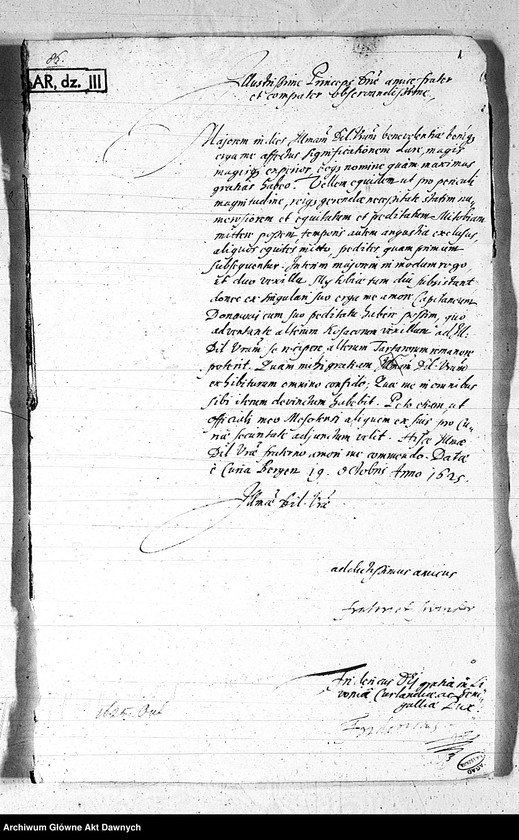 86.
1
AR, dz. III
Illustrissime Princeps Dne amice frater
et compater observandissime,
Majorem in dies Illmam Dil. Vram benevolentiae
erga me affectus significationem dare, magis
magisq experior, eoq nomine quam maximas
gratias habeo. Vellem equidem ut pro periculi
magnitudine, reiq gerendae necessitate statim nu
merosiorem et equitatum et peditatum Mitoviam
mittere possem temporis autem angustia exclusus
aliquos equites mitto, pedites quam primum
subsequentur. Interim majorem in modum rogo,
ut duo vexilla tam diu subsistant
donec ex singulari suo erga me amore Capitaneum
Donowaii cum suo peditatu habere possim, quo
adventante alterum Kosacorum vexillum ad Ill.
Dil. Vram se recipere alterum Tartarorum remanere
poterit. Quam mihi gratiam Illmam Dil. Vram
exhibituram omnino confido; Quae me in omnibus
sibi iterum devinctum habebit. Peto etiam, ut
officiali meo aliquem ex suis pro
securitate adjunctum velit. Hisce Illmae
Dil. Vrae fraterno amori me commendo. Datae
è Curia Bergen 19. Octobris Anno 1625.
Illmae Dil. Vrae
addictissimus amicus
frater et
Fridericus D G in Li
vonia Curlandiae ac Semi
galliae Dux
Fridericus
1625. Oct
3
AGAD
Archiwum Główne Akt Dawnych